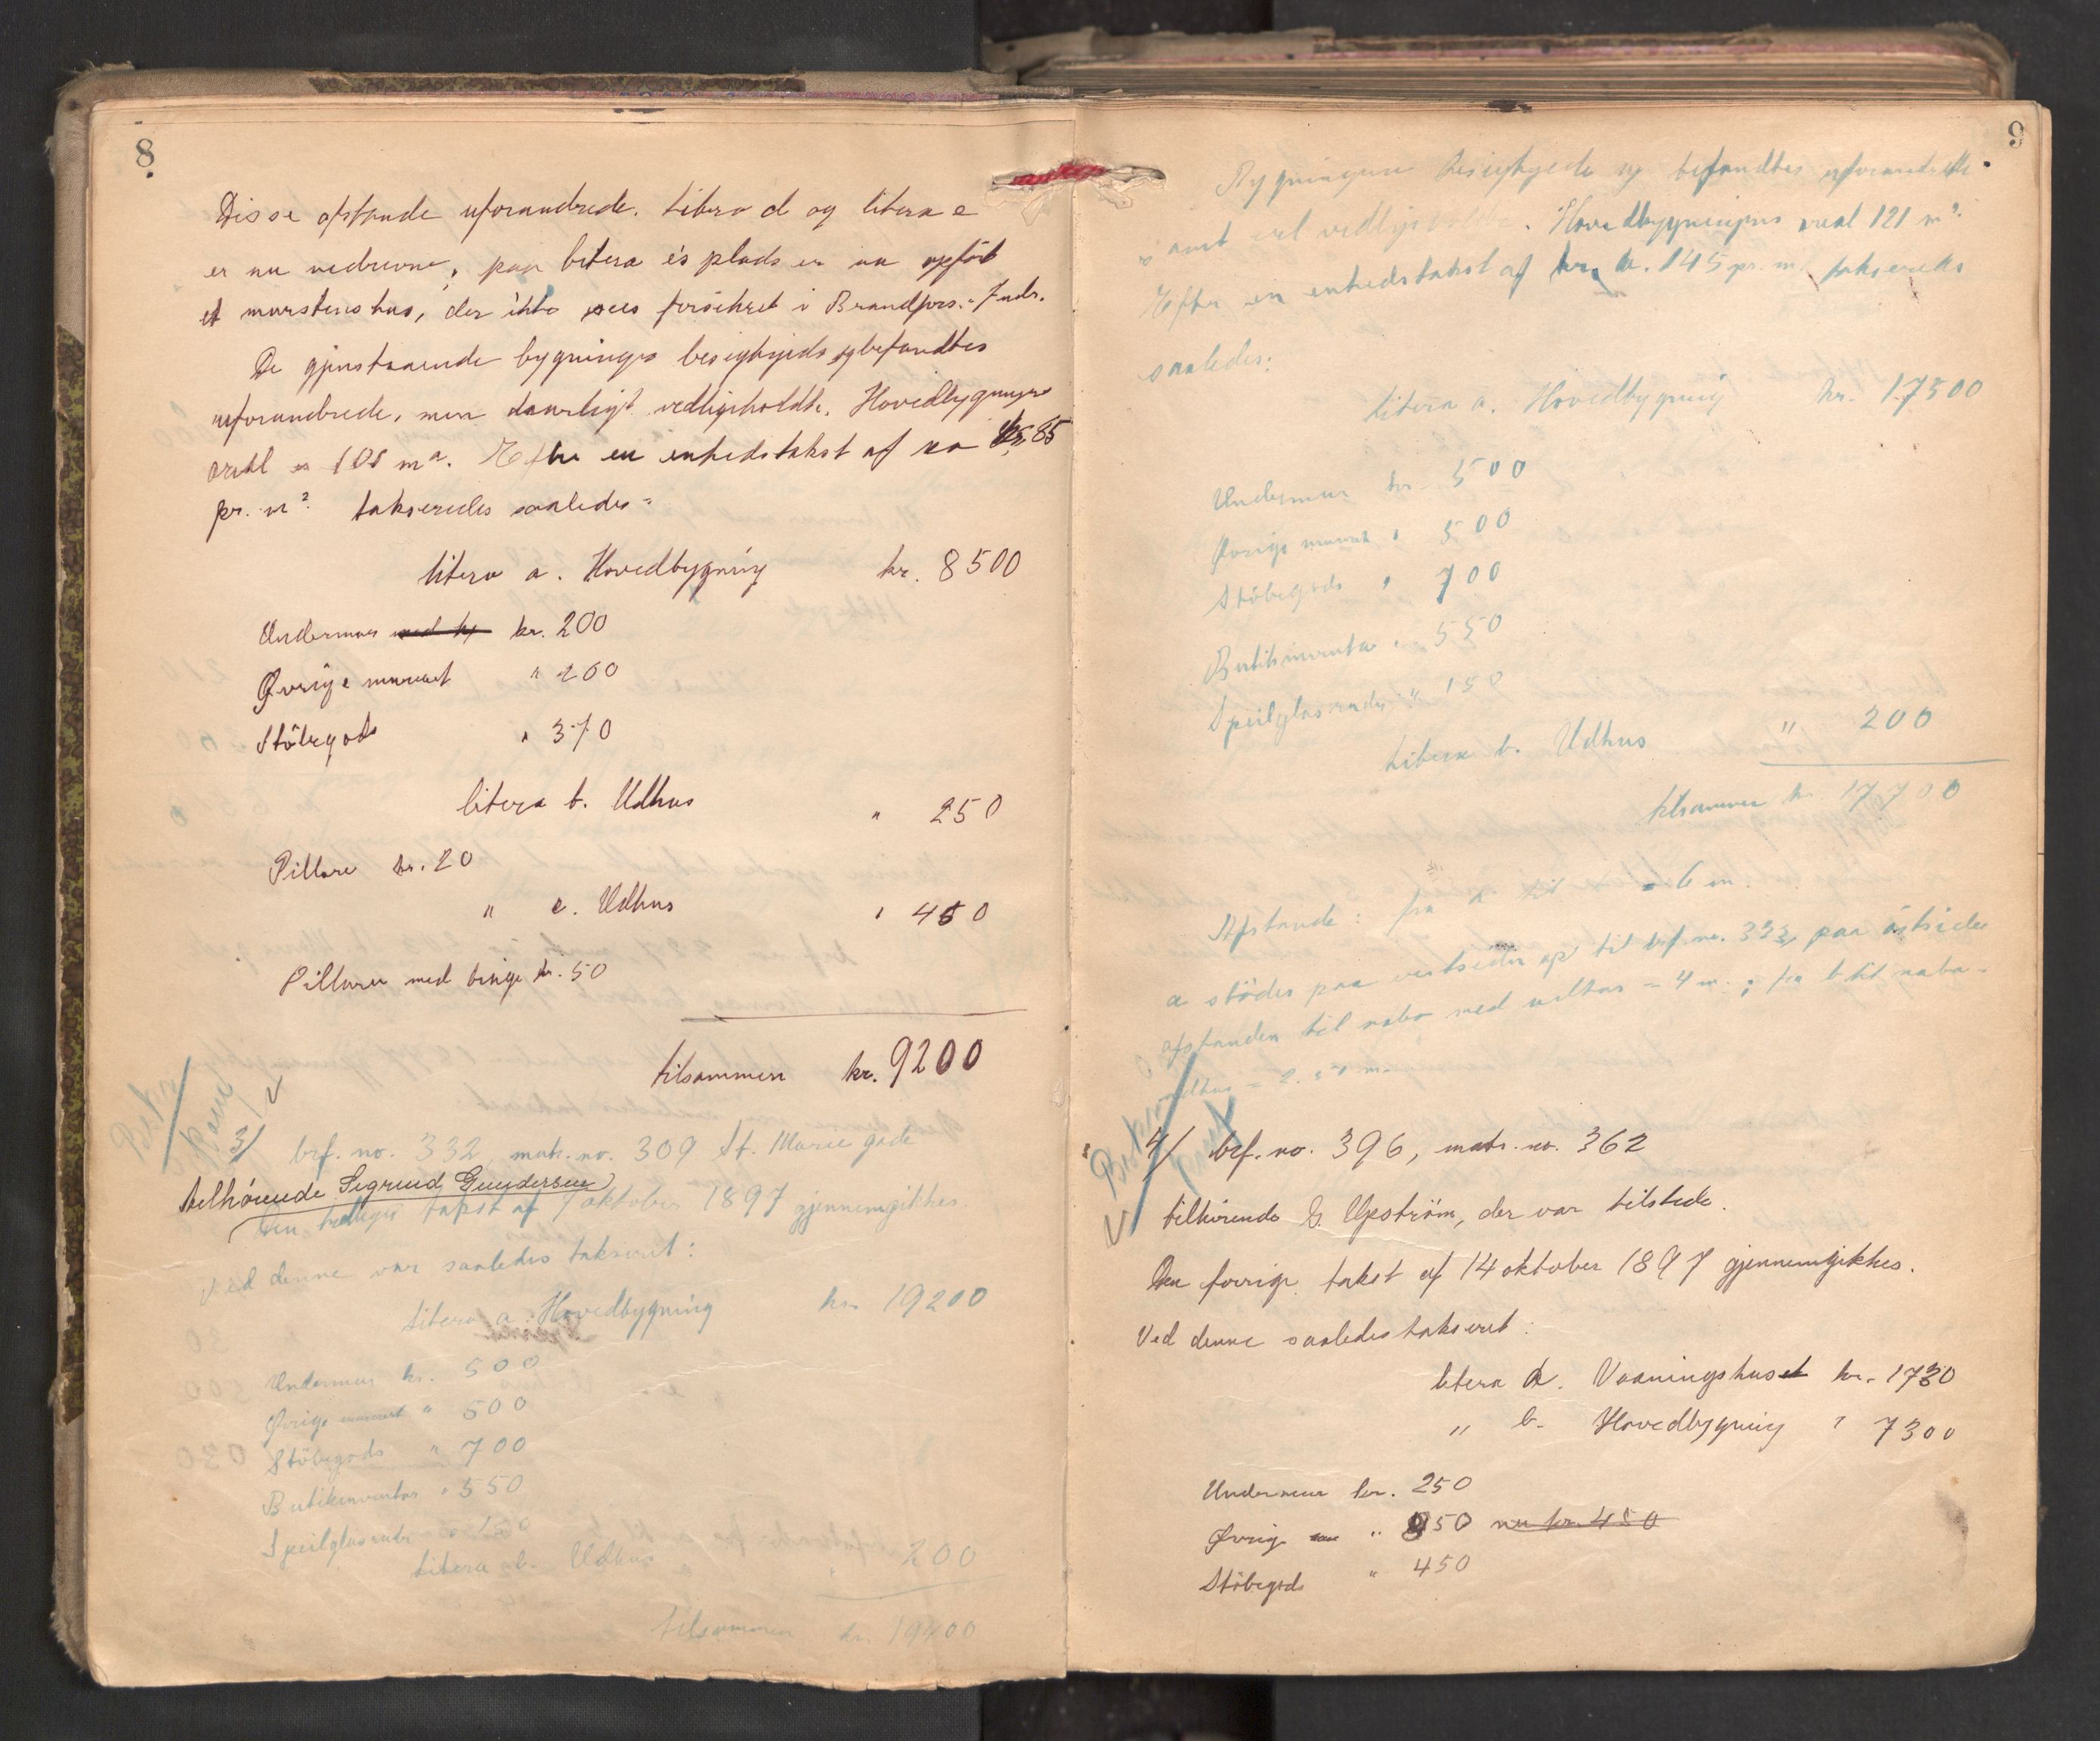 8
Disse afstande uforandrede. Litera d og litera e
er nu nedrevne, paa litera e's plads er nu opført
et murstenshus, der ikke sees forsikret i Brandfors.-Indr.
De gjenstaaende bygninger besigtigedes og befandtes
uforandrede, men daarligt vedligeholdte. Hovedbygningens
areal er 101 m². Efter en enhedstakst af kr. 85
pr. m² takseredes saaledes:
litera a. Hovedbygning kr. 8500
Undermur kr. 200
Øvrige murværk " 200
Støbegods " 370
litera b. Udhus " 250
Pillare kr. 20
" c. Udhus " 450
Pillarer med binge kr. 50
tilsammen kr. 9200
3/ brf. no. 332, matr. no. 309 St. Marie gade
tilhørende Sigrud Gundersen
Den tidligere takst af 7 oktober 1897 gjennemgikkes.
Ved denne var saaledes takseret:
Litera a. Hovedbygning kr. 19200
Undermur kr. 500
Øvrige murværk " 500
Støbegods " 700
Butikinventar " 550
Speilglasruder " 150
Litera b. Udhus " 200
tilsammen kr. 19400
9
Bygningerne besigtigede og befandtes uforandrede
samt vel vedligeholdte. Hovedbygningens areal 121 m².
Efter en enhedstakst af kr. 145 pr. m² takseredes
saaledes:
Litera a. Hovedbygning kr. 17500
Undermur kr. 500
Øvrige murværk " 500
Støbegods " 700
Butikinventar " 550
Speilglasruder " 150
Litera b. Udhus " 200
tilsammen kr. 17700
Afstande: fra a til = 6 m.
a støder paa vestsiden op til brf. no. 333, paa østsiden
afstanden til nabo med udhus = 4 m.; fra b til nabo-
udhus = 2.50 m.
4/ brf. no. 396, matr. no. 362
tilhørende G. Upström, der var tilstede.
Den forrige takst af 14 oktober 1897 gjennemgikkes.
Ved denne saaledes takseret:
litera a. Vaaningshuset kr. 1730
" b. Hovedbygning " 7300
Undermur kr. 250
Øvrige mur " 950 nu kr. 450
Støbegods " 450